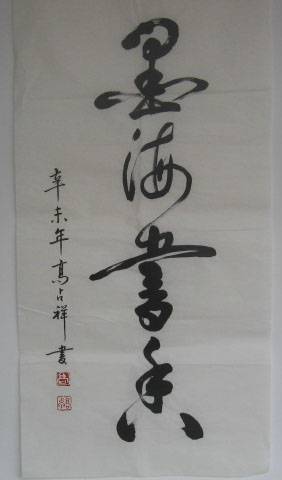 墨海書香
辛未年高占祥書